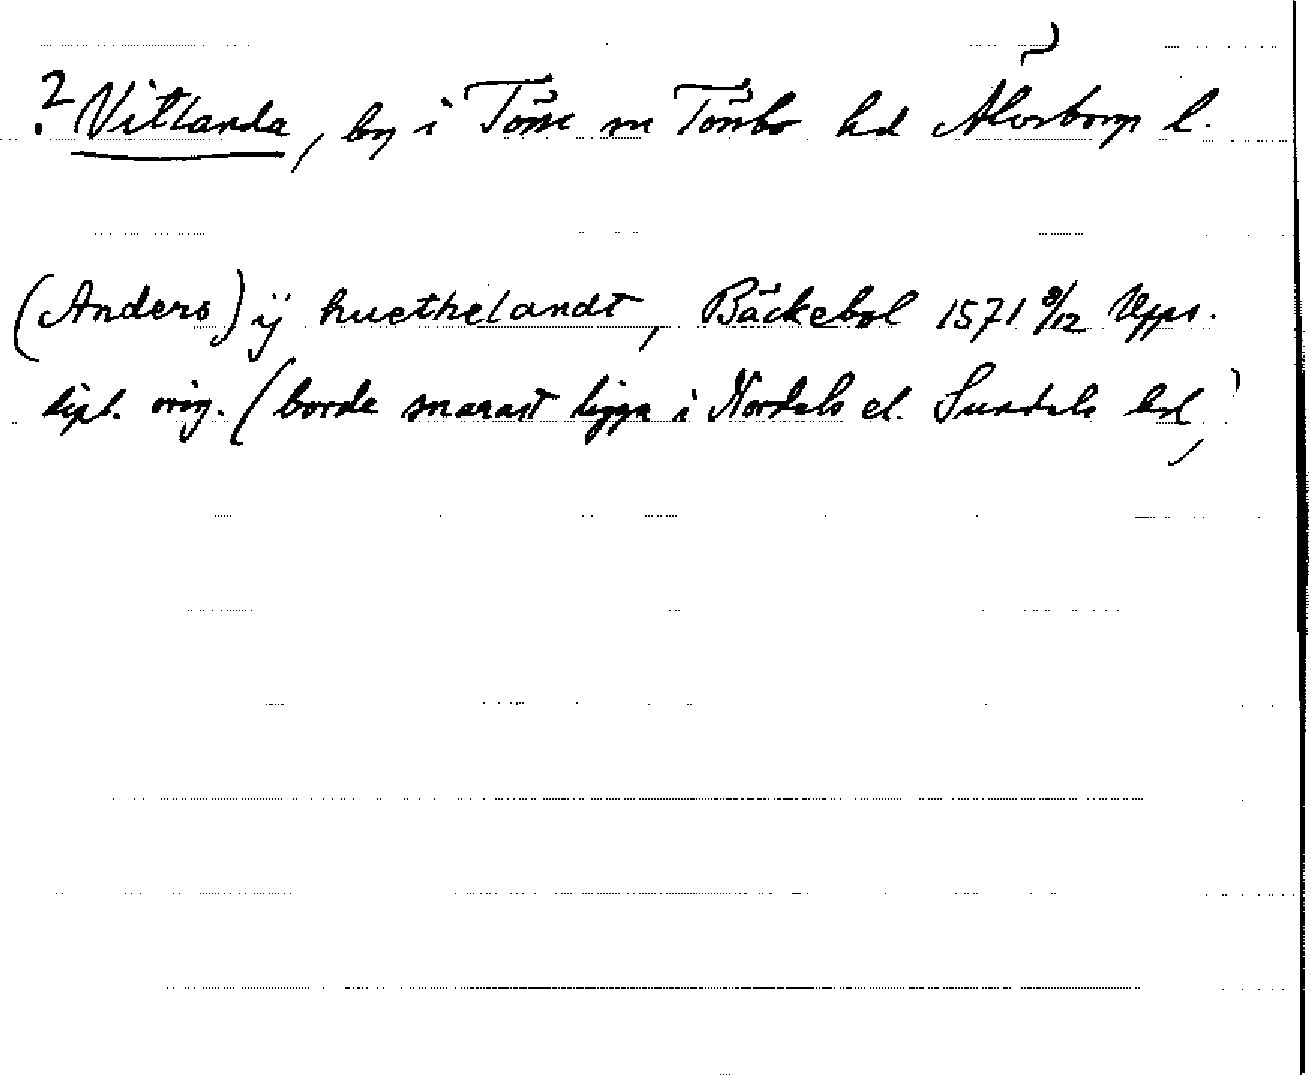 ? Vitlanda, by i Tösse sn Tössbo hd Älvsborgs l.
(Anders) ij huethelandt, Bäckebol 1571 9/12 Upps.
dipl. orig. (borde snarast ligga i Nordals el. Sundals hd)